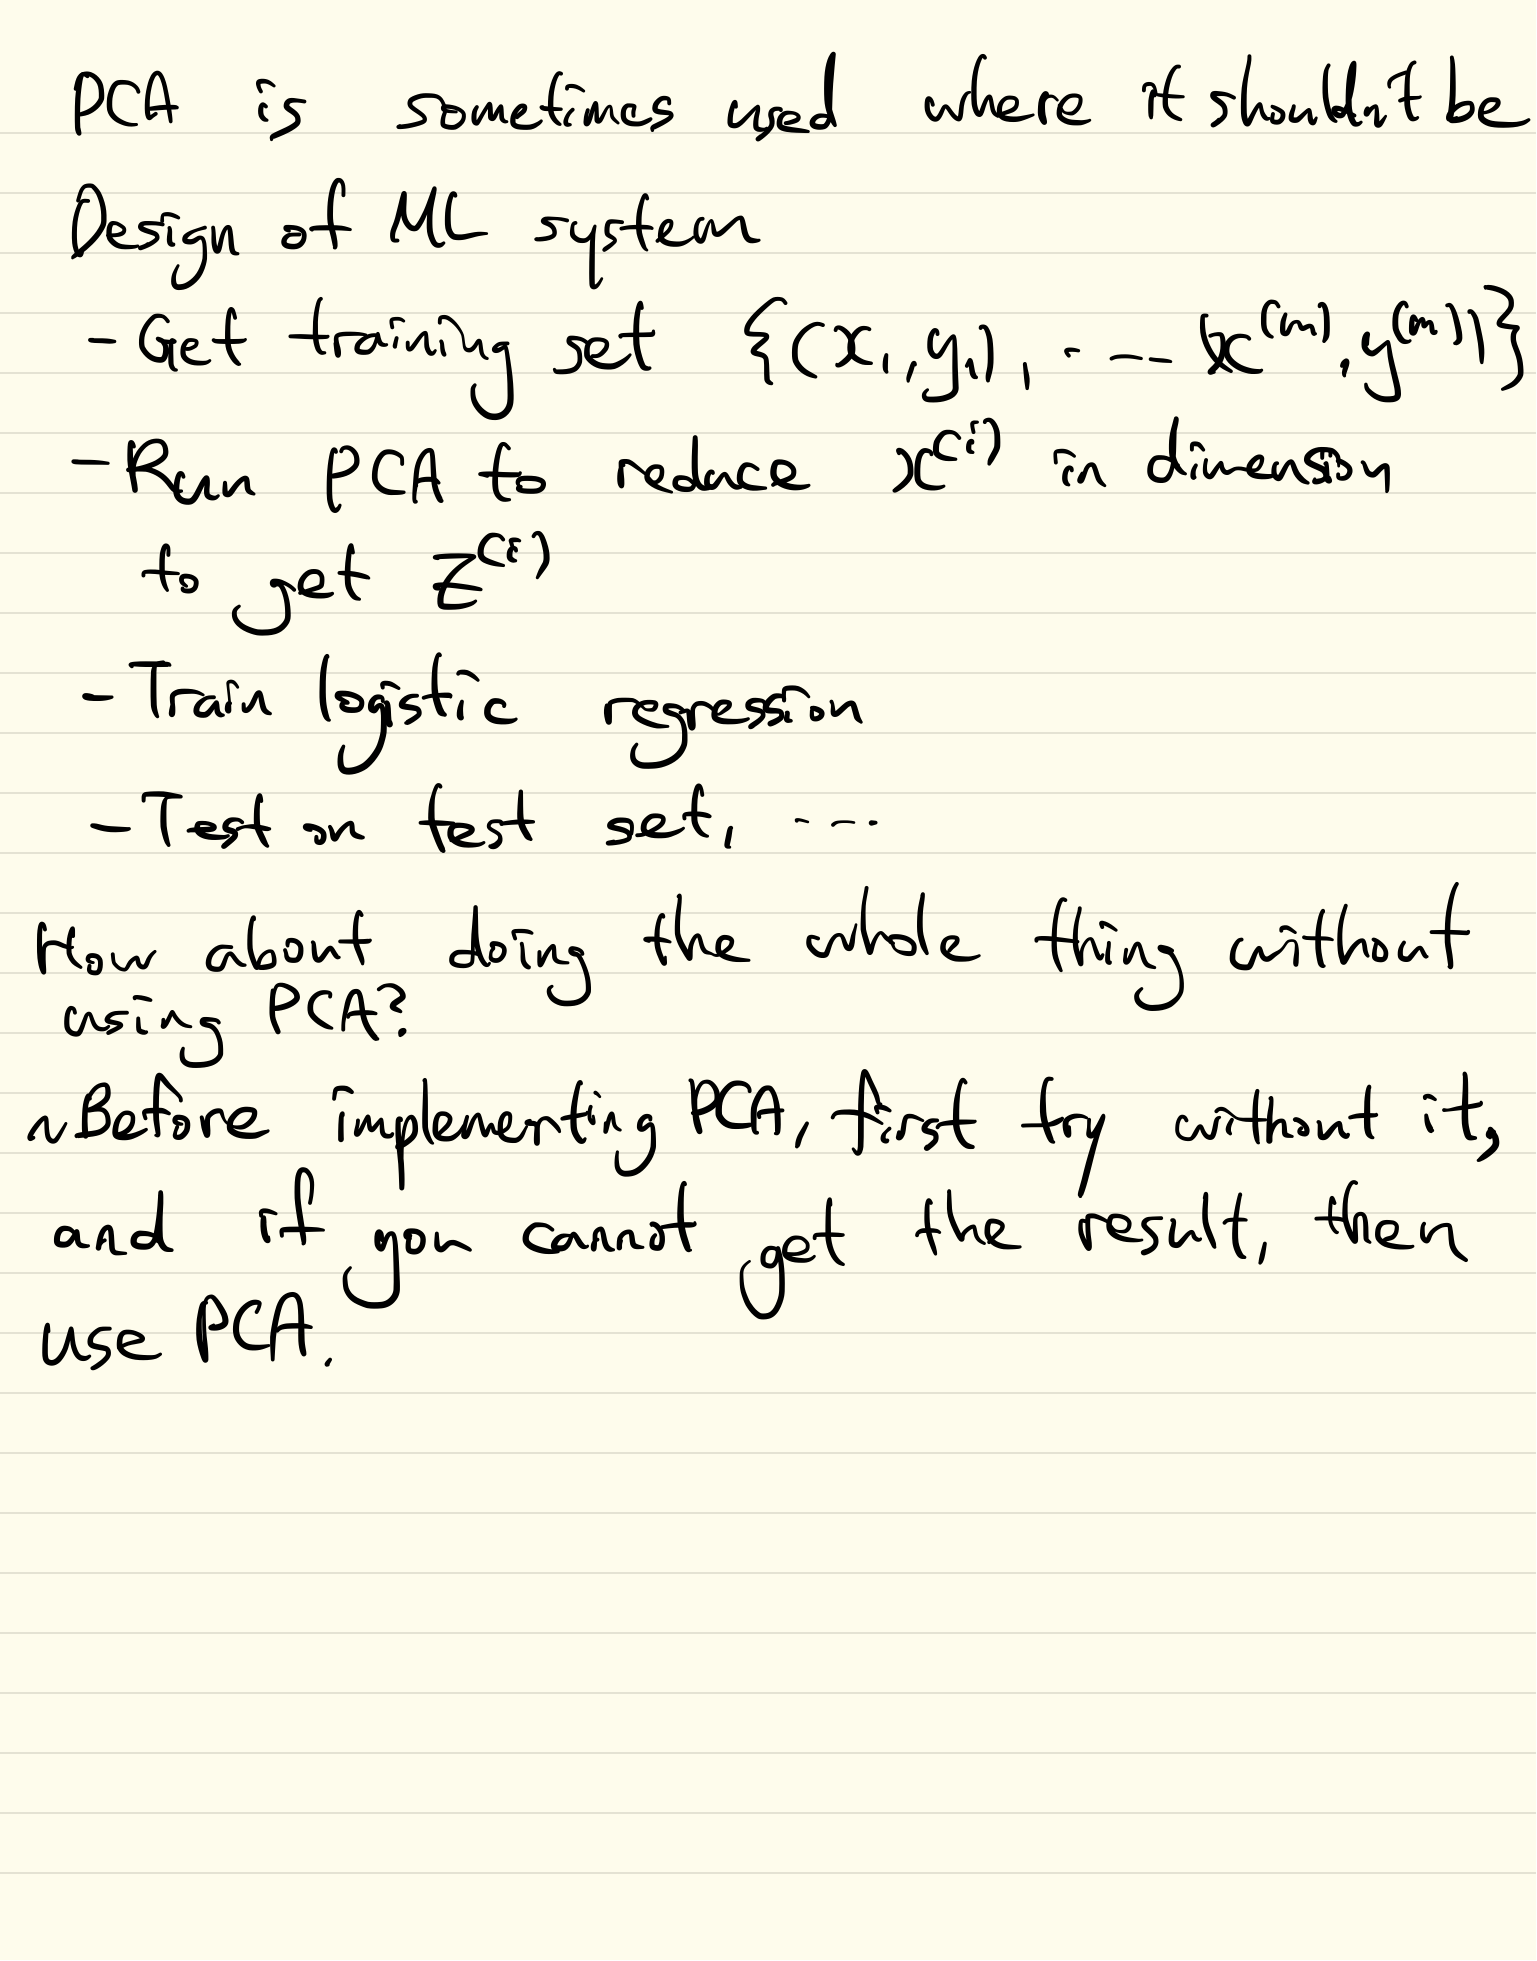 PCA is sometimes used where it shouldn't be
Design of ML system
- Get training set {(x₁,y₁), ..... (x^(m), y^(m))}
- Run PCA to reduce x^(i) in dimension
to get z^(i)
- Train logistic regression
- Test on test set, ...
How about doing the whole thing without
using PCA?
~Before implementing PCA, first try without it,
and if you cannot get the result, then
use PCA.